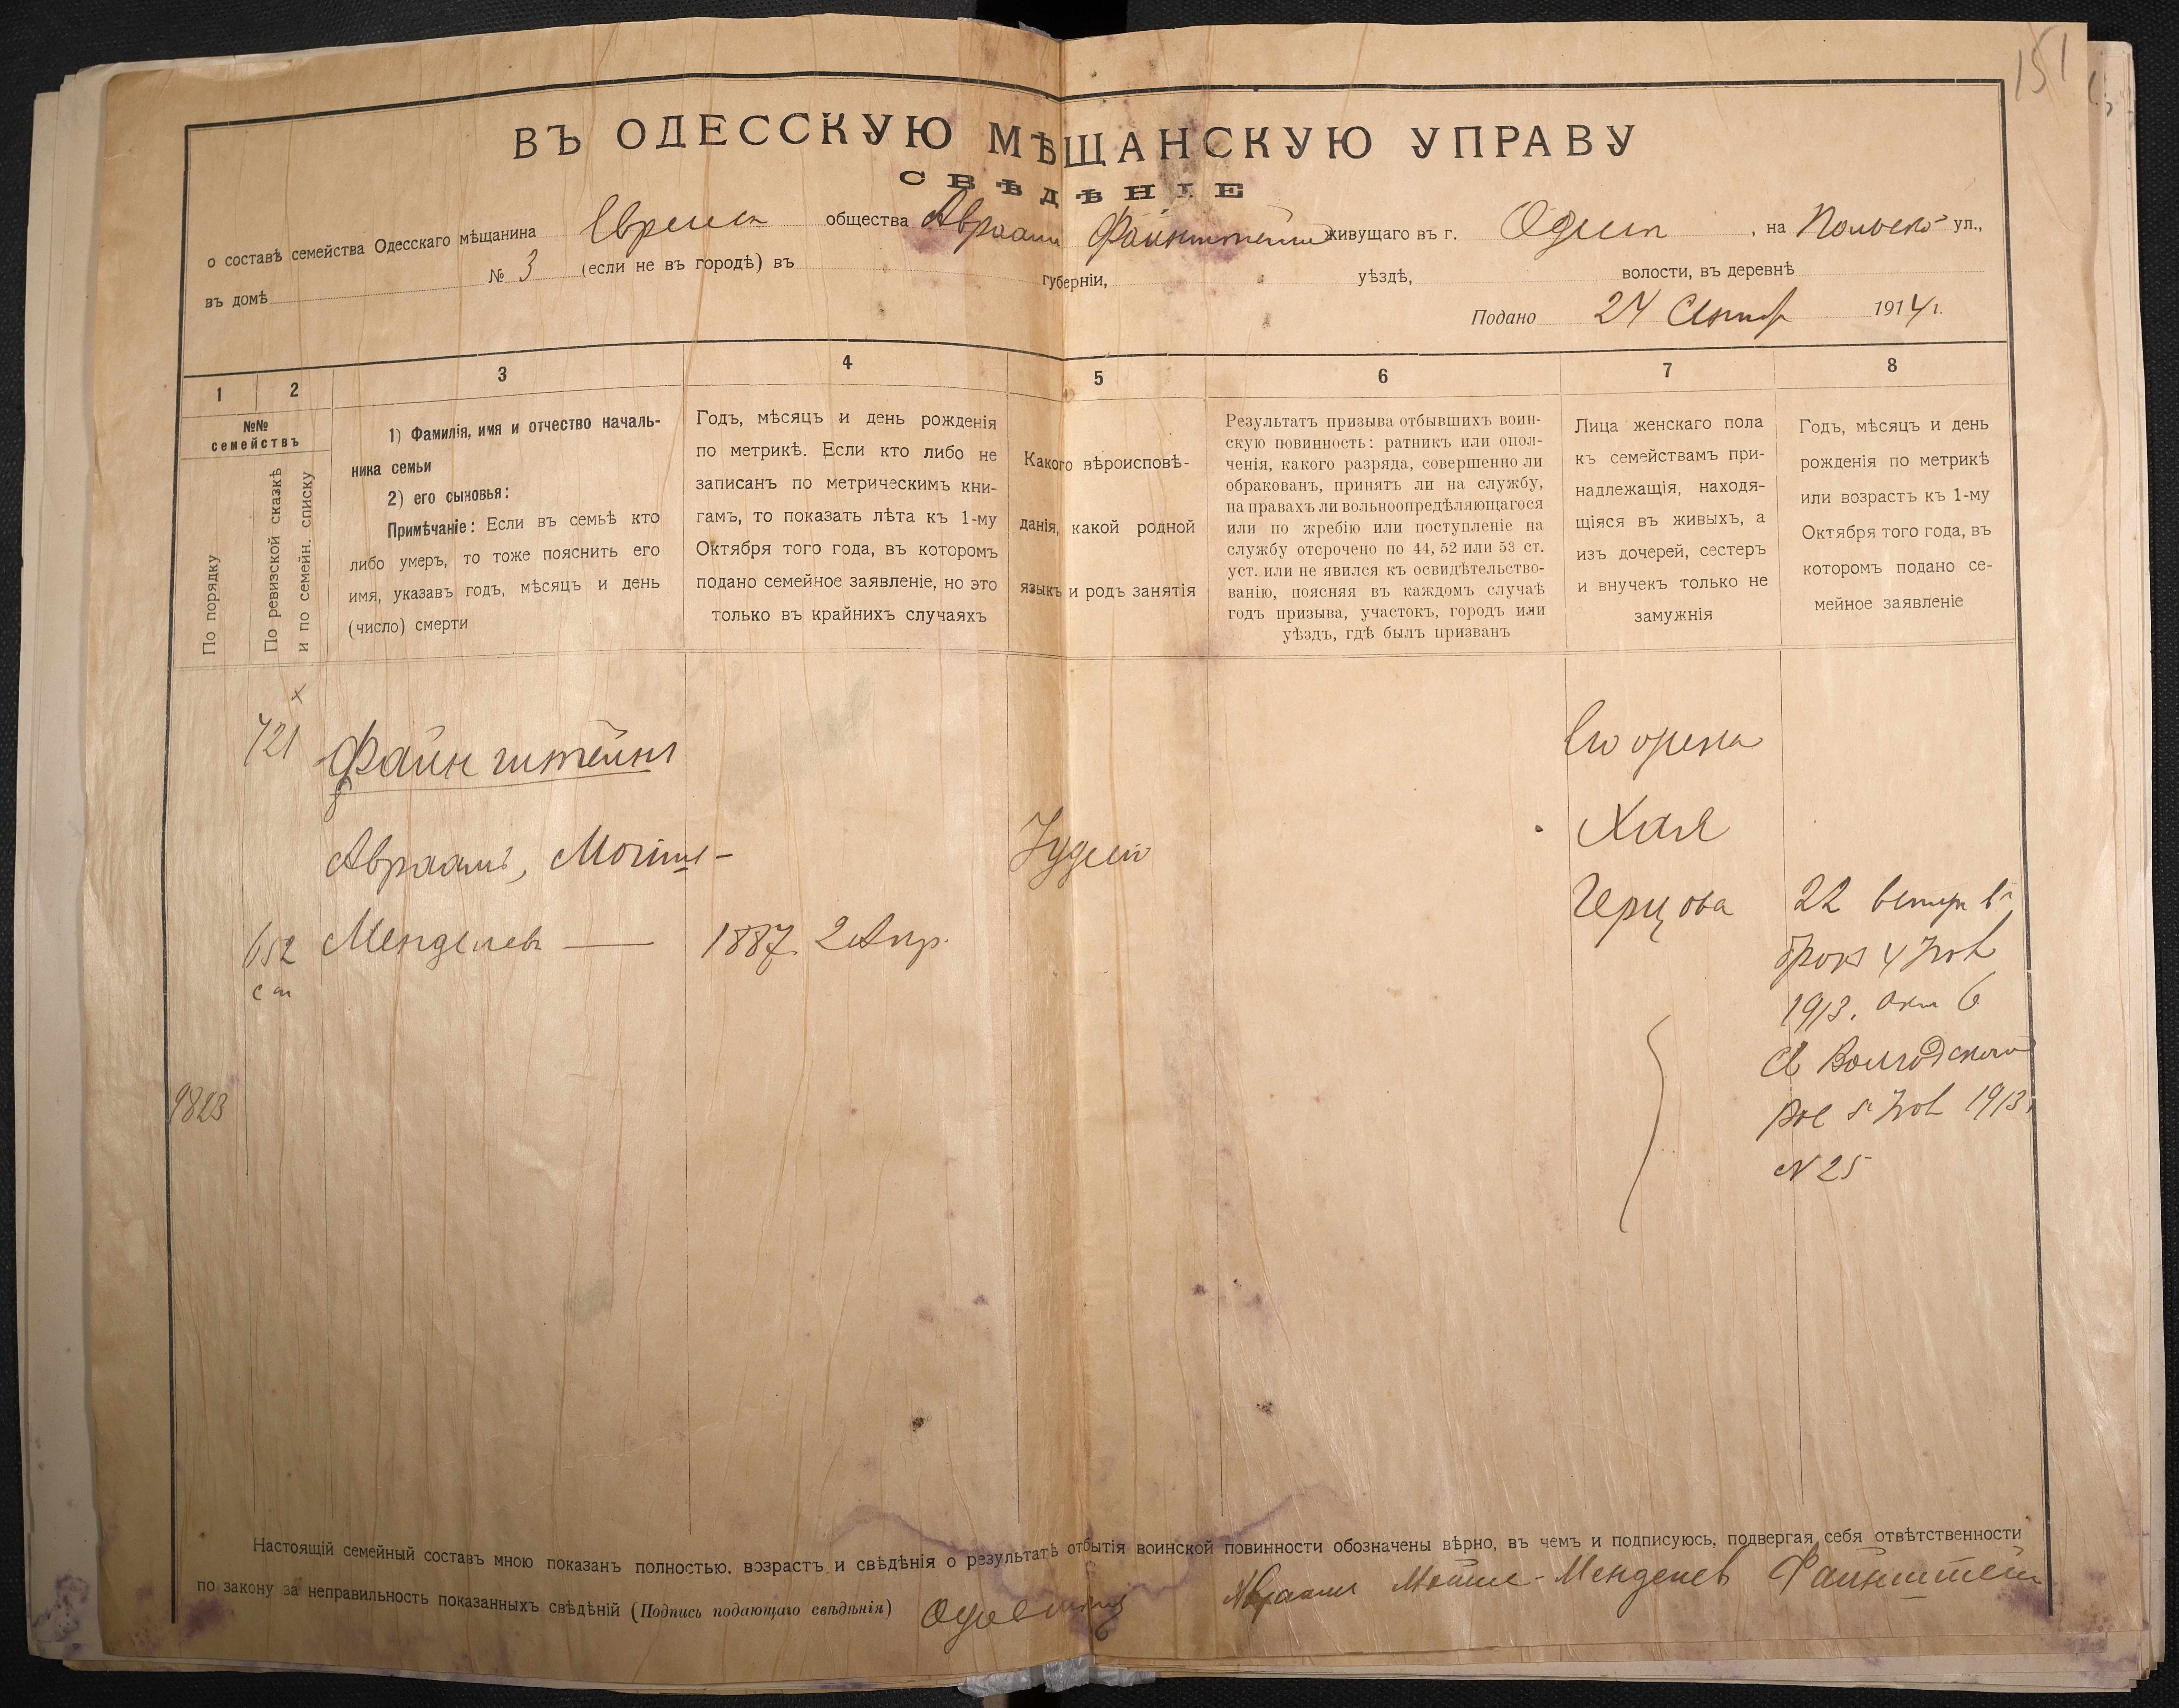 151
ВЪ ОДЕССКУЮ МѢЩАНСКУЮ УПРАВУ
СВѢДѢНІЕ
о составѣ семейства Одесскаго мѣщанина Евреиск общества Авраам Файнштейнъ живущаго въ г. Одесса, на Польско ул.,
въ домѣ № 3 (если не въ городѣ) въ губерніи, уѣздѣ, волости, въ деревнѣ
Подано 24 1914 г.
1 2 3 4 5 6 7 8
№№
семействъ
По порядку
По ревизской сказкѣ
и по семейн. списку
1) Фамилія, имя и отчество началь-
ника семьи
2) его сыновья:
Примѣчаніе: Если въ семьѣ кто
либо умеръ, то тоже пояснить его
имя, указавъ годъ, мѣсяцъ и день
(число) смерти
Годъ, мѣсяцъ и день рожденія
по метрикѣ. Если кто либо не
записанъ по метрическимъ кни-
гамъ, то показать лѣта къ 1-му
Октября того года, въ которомъ
подано семейное заявленіе, но это
только въ крайнихъ случаяхъ
Какого вѣроисповѣ-
данія, какой родной
языкъ и родъ занятія
Результатъ призыва отбывшихъ воин-
скую повинность: ратникъ или опол-
ченія, какого разряда, совершенно ли
обракованъ, принятъ ли на службу,
на правахъ ли вольноопредѣляющагося
или по жребію или поступленіе на
службу отсрочено по 44, 52 или 53 ст.
уст. или не явился къ освидѣтельство-
ванію, поясняя въ каждомъ случаѣ
годъ призыва, участокъ, городъ или
уѣздъ, гдѣ былъ призванъ
Лица женскаго пола
къ семействамъ при-
надлежащія, находя-
щіяся въ живыхъ, а
изъ дочерей, сестеръ
и внучекъ только не
замужнія
Годъ, мѣсяцъ и день
рожденія по метрикѣ
или возрастъ къ 1-му
Октября того года, въ
которомъ подано се-
мейное заявленіе
721 Файнштейнъ
Его жена
Авраамъ, Мошіи-
Іудей
Хая
652 Менделевъ — 1887 2 Апр.
Герцова
22
4
1913. 6
5 1913
N 25
9823
Настоящій семейный составъ мною показанъ полностью, возрастъ и свѣдѣнія о результатѣ отбытія воинской повинности обозначены вѣрно, въ чемъ и подписуюсь, подвергая себя отвѣтственности
по закону за неправильность показанныхъ свѣдѣній (Подпись подающаго свѣдѣнія) Авраамъ Мошие-Менделевъ Файнштейн